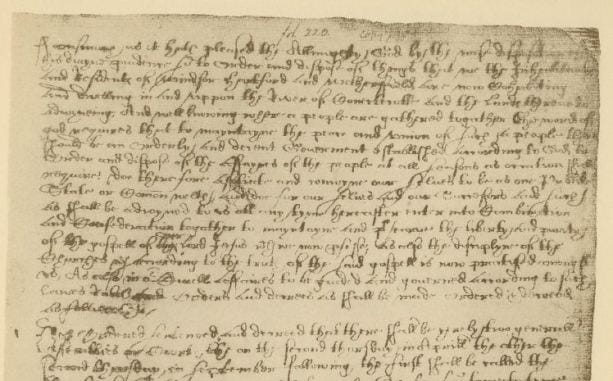 fol. 220.
as it hath pleased the Allmighty God by the wise
his diuyne pruidence so to Order and dispose of things that we the Inhabitants
and Residents of Windsor Harteford and Wethersfield are now Cohabiting
and dwelling in and vppon the River of Conectecotte and the Lands thereunto
adioyneing; And well knowing where a people are gathered togather the word of
god requires that to mayntayne the peace and vnion of such a people there
should be an orderly and decent Gouerment established according to God, to
Order and dispose of the affayres of the people at all seasons as occation shall
require; doe therefore assotiate and conioyne our selues to be as one
State or Comonwelth; and doe for our selues and our Successors and such
as shall be adioyned to vs att any tyme hereafter enter into Combination
and Confederation togather to mayntayne and the liberty and purity
of the gospell of our Lord Jesus wch we now as also the disciplyne of the
Churches wch according to the truth of the said gospell is now practised amongst
vs. As also in or Ciuell affaires to be guided and gouerned according to such
Lawes Rules Orders and decrees as shall be made ordered & decreed
as followeth:
It is Ordered sentenced and decreed that there shall be yerely two generall
Assemblies or Courts, the on the second thursday in Aprill, the other the
second thursday in September following, the first shall be called the